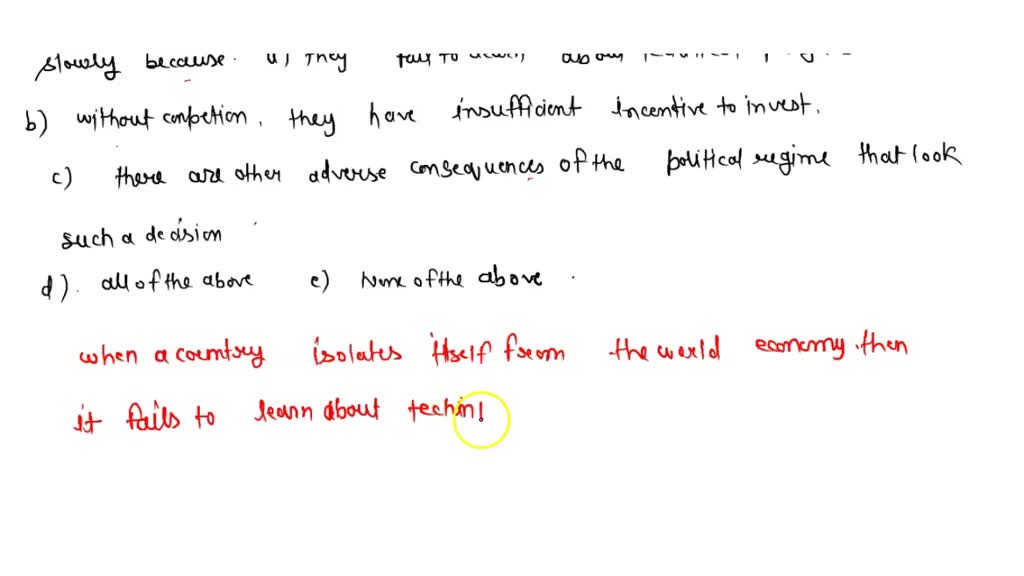 slowly because. a) They fail to
b) without conpetion, they have insufficient incentive to invest.
c) there are other adverse consequences of the political regime that look
such a decision
d). all of the above e) None of the above .
when a country isolates itself from the world economy. then
it fails to learn about techin